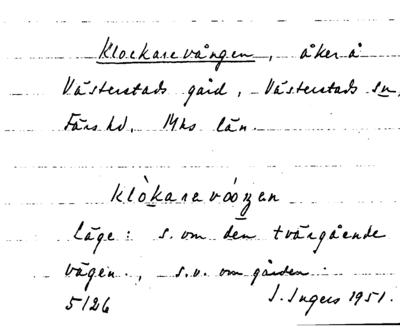 Klockarevången, åker å
Västerstads gård, Västerstads sn,
Färs hd, Mhs län.
klò̀karevóŋen
Läge: s. om den tvärgående
vägen, s.v. om gården.
5/26 I. Ingers 1951.